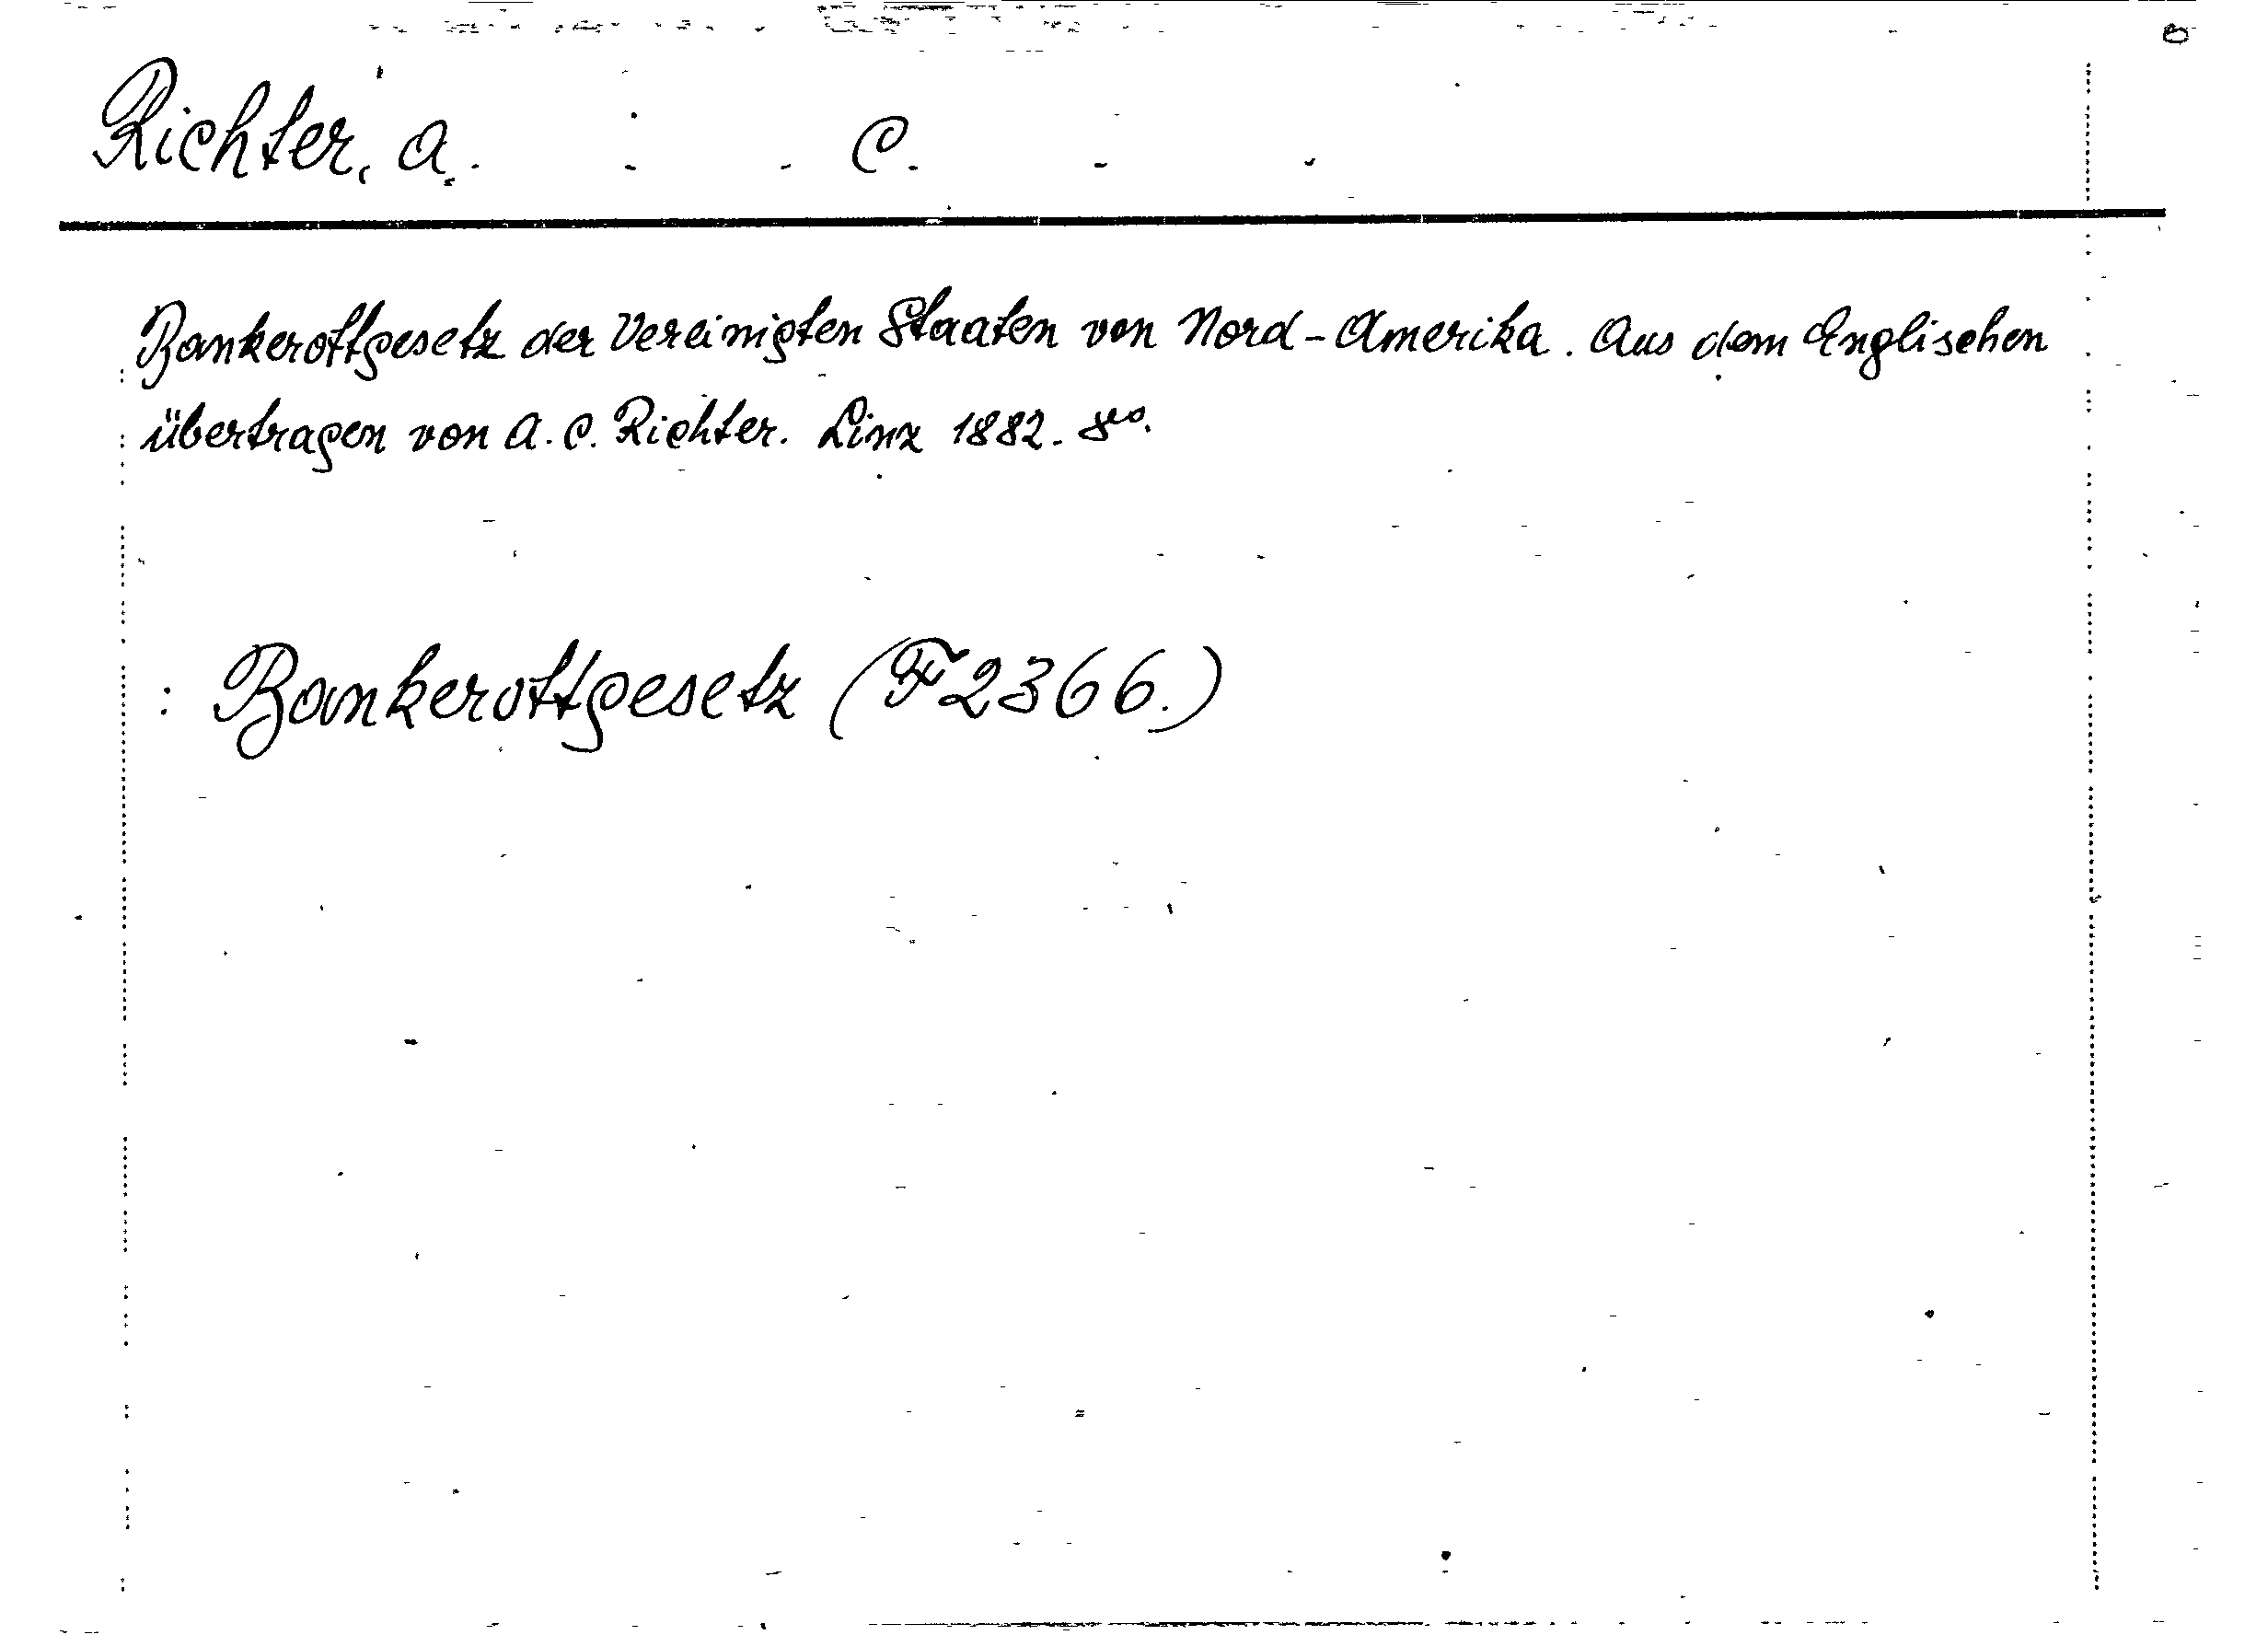 Richter, A. C.
Bankerottgesetz der Vereinigten Staaten von Nord-Amerika. Aus dem Englischen
übertragen von A. C. Richter. Linz 1882. 8vo.
: Bankerottgesetz (F 2366.)